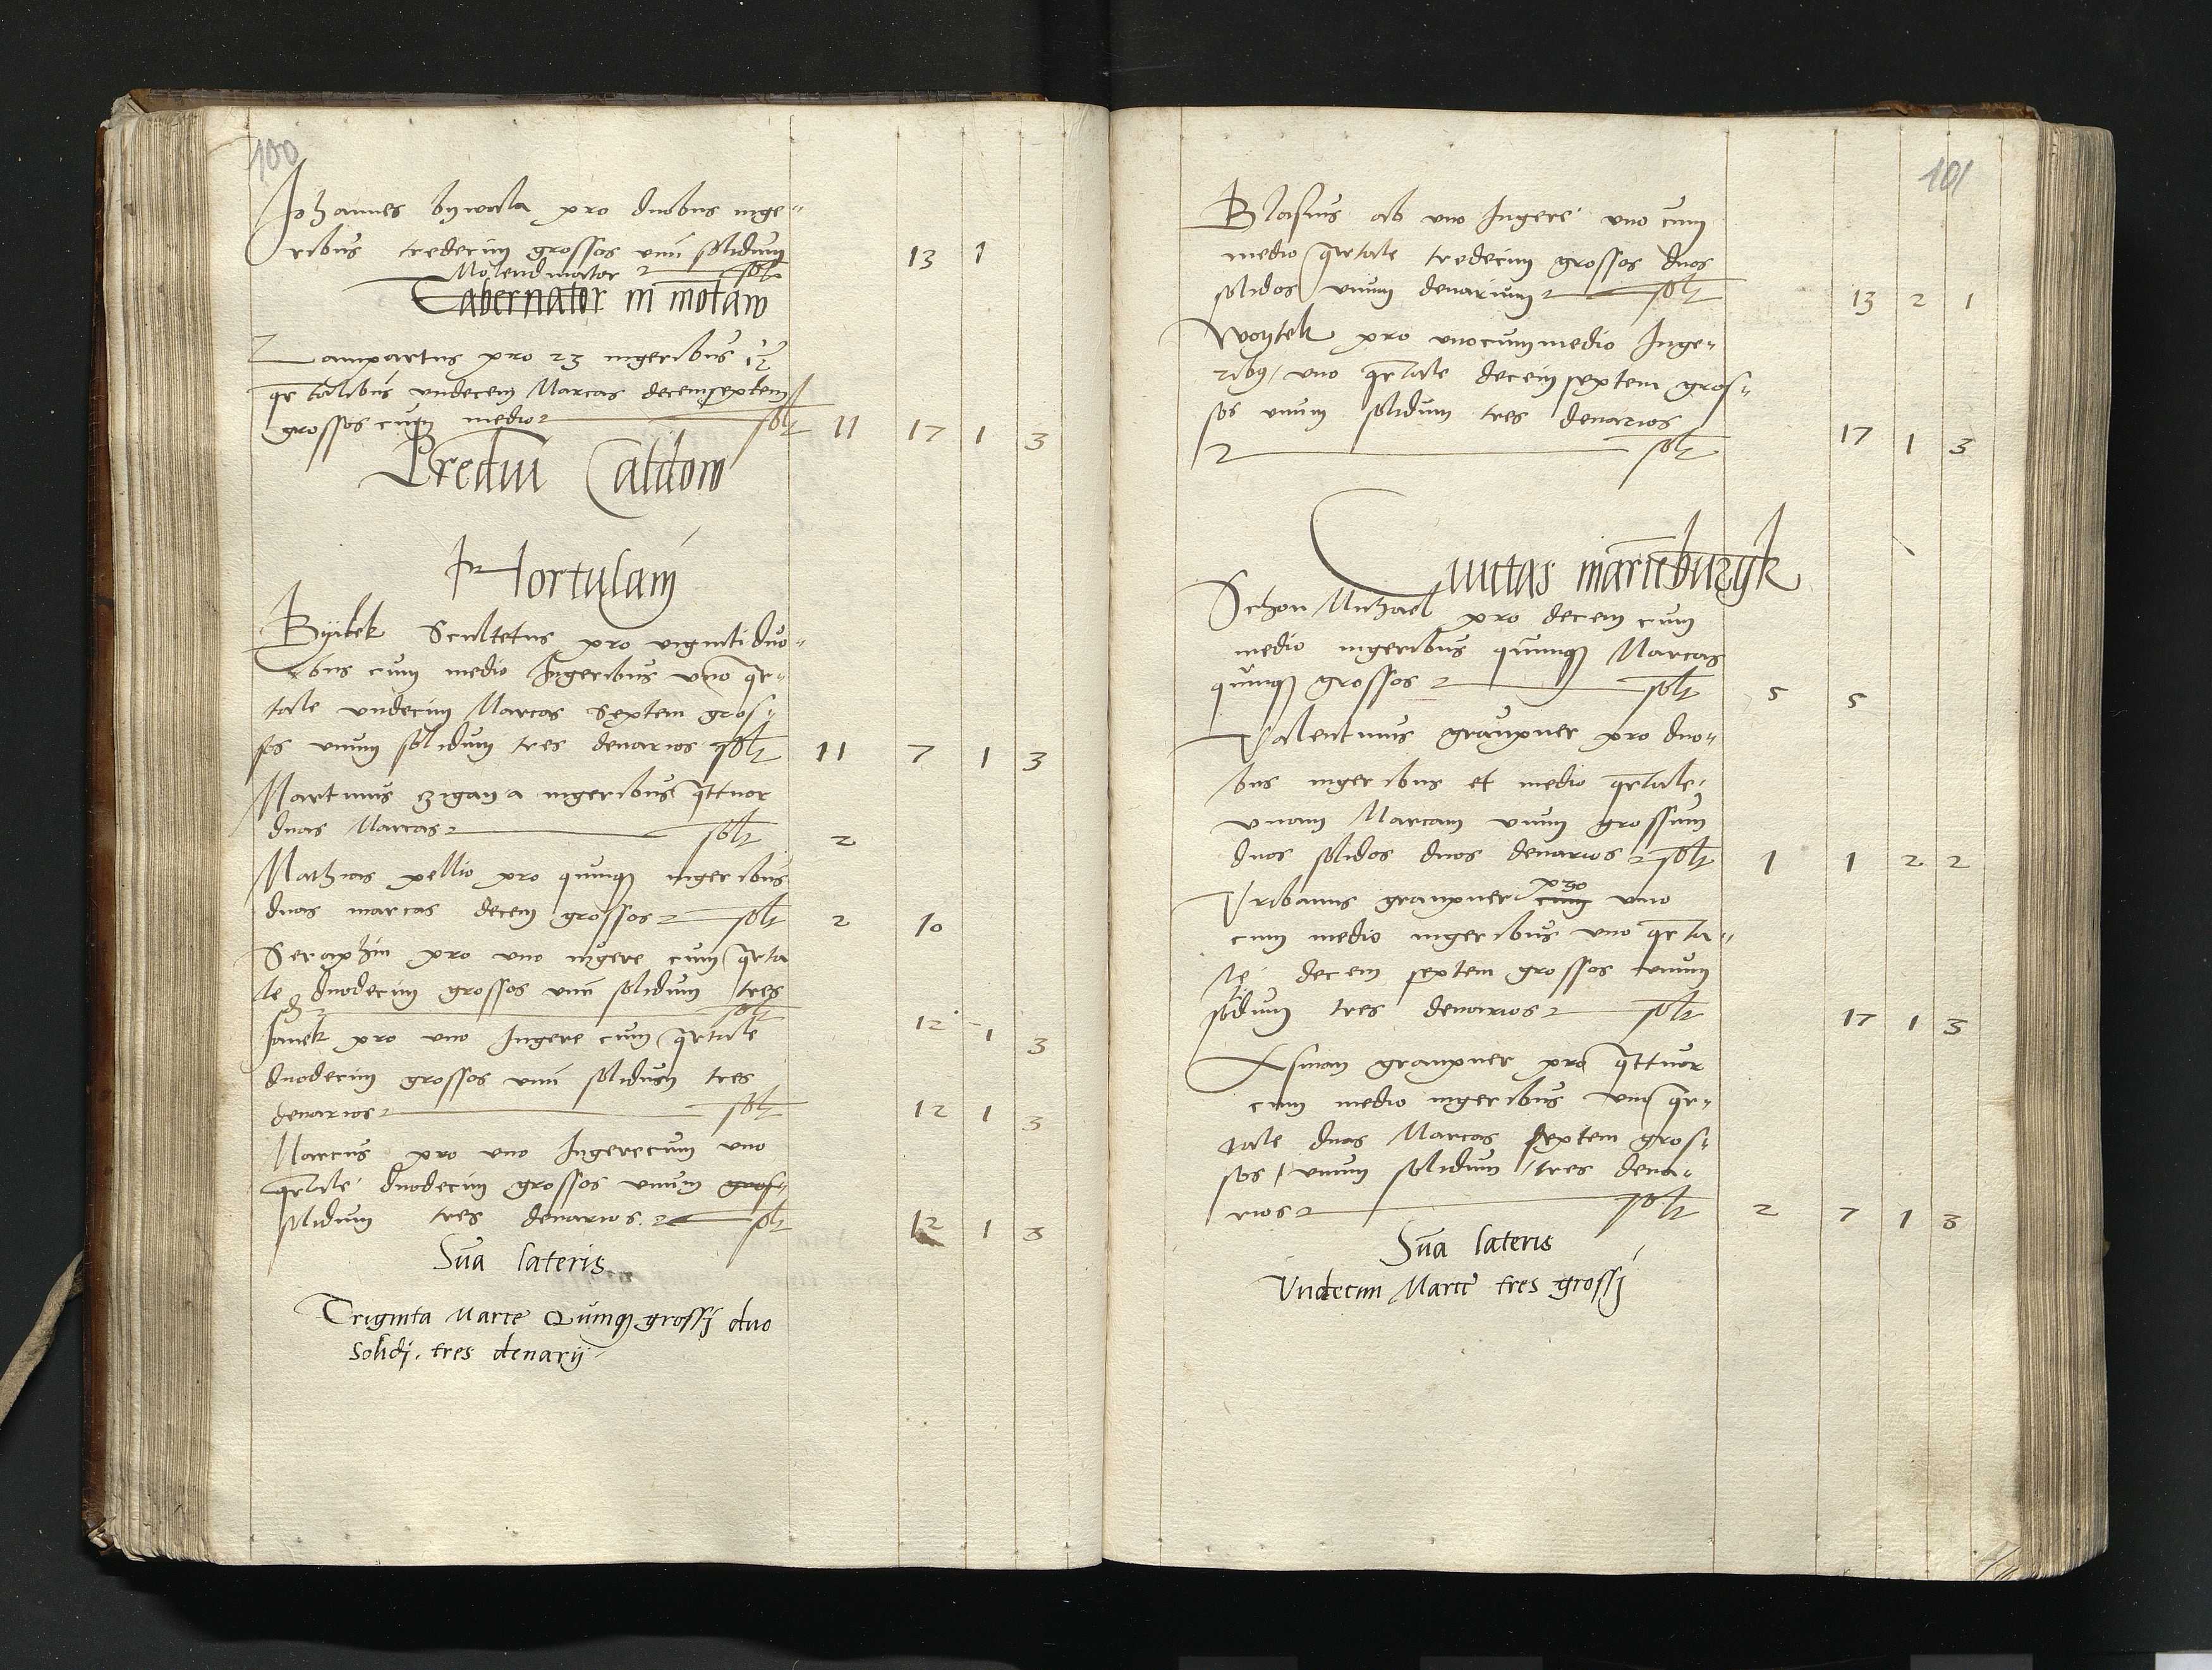 100
Johannes bywola pro duobus inge=
ribus tredecim grossos unū solidum
Molendinator solt 13 1
Tabernator in motaw
Lampartus pro 23 ingeribus
qrtalibus undecem Marcas decemseptem
grossos cum medio solt 11 17 1 3
Prediū Caldow
Hortulani
Bytek Scultetus pro viginti duo=
bus cum medio Ingeribus uno qr=
tale undecim Marcas Septem gros=
sos unum solidum tres denarios solt 11 7 1 3
Martinus zigan a ingeribus qttuor
duas Marcas solt 2
Mathias pellio pro quinqȝ ingeribus
duas marcas decem grossos solt 2 10
Seraphin pro uno ingere cum qrta
le duodecim grossos unū solidum tres
solt 12 1 3
Janek pro uno Ingere cum qrtale
duodecim grossos unū solidum tres
denarios solt 12 1 3
Marcus pro uno Ingerecum uno
qrtale duodecim grossos unum gros=
solidum tres denarios solt 12 1 3
Sūa lateris
Triginta Marce Quinqȝ grossj duo
Solidj. tres denarij
101
Blasius ab uno Ingere uno cum
medio qrtale tredecim grossos duos
solidos unum denarium solt 13 2 1
Woytek pro unocummedio Inge=
ribȝ uno qrtale decemseptem gros=
sos unum solidum tres denarios
solt 17 1 3
Ciuitas marieburgk
Schon Michael pro decem cum
medio ingeribus quinqȝ Marcas
quinqȝ grossos solt 5 5
Valentinus graupner pro duo=
bus ingeribus et medio qrtale
unam Marcam unum grossum
duos solidos duos denarios solt 1 1 2 2
pro
Urbanus graupner cum uno
cum medio ingeribus uno qrta=
le decem septem grossos unum
solidum tres denarios solt 17 1 3
Asman graupner pro qttuor
cum medio ingeribus uno qr=
tale duas Marcas septem gros=
sos unum solidum tres dena=
rios solt 2 7 1 3
Sūa lateris
Undecim Marce tres grossj